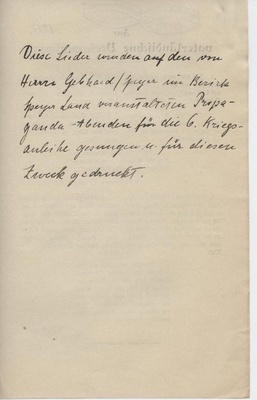 Diese Lieder wurden auf den von
Herrn Gebhard/Speyer im Bezirk
Speyer Land veranstalteten Propa-
ganda-Abenden für die 6. Kriegs-
anleihe gesungen u. für diesen
Zweck gedruckt.